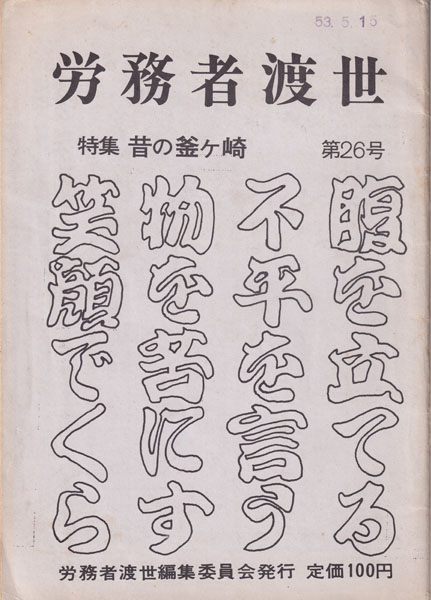 53. 5. 15
労務者渡世
特集 昔の釜ヶ崎 第26号
腹を立てる
不平を言う
物を苦にす
笑顔でくら
労務者渡世編集委員会発行 定価100円